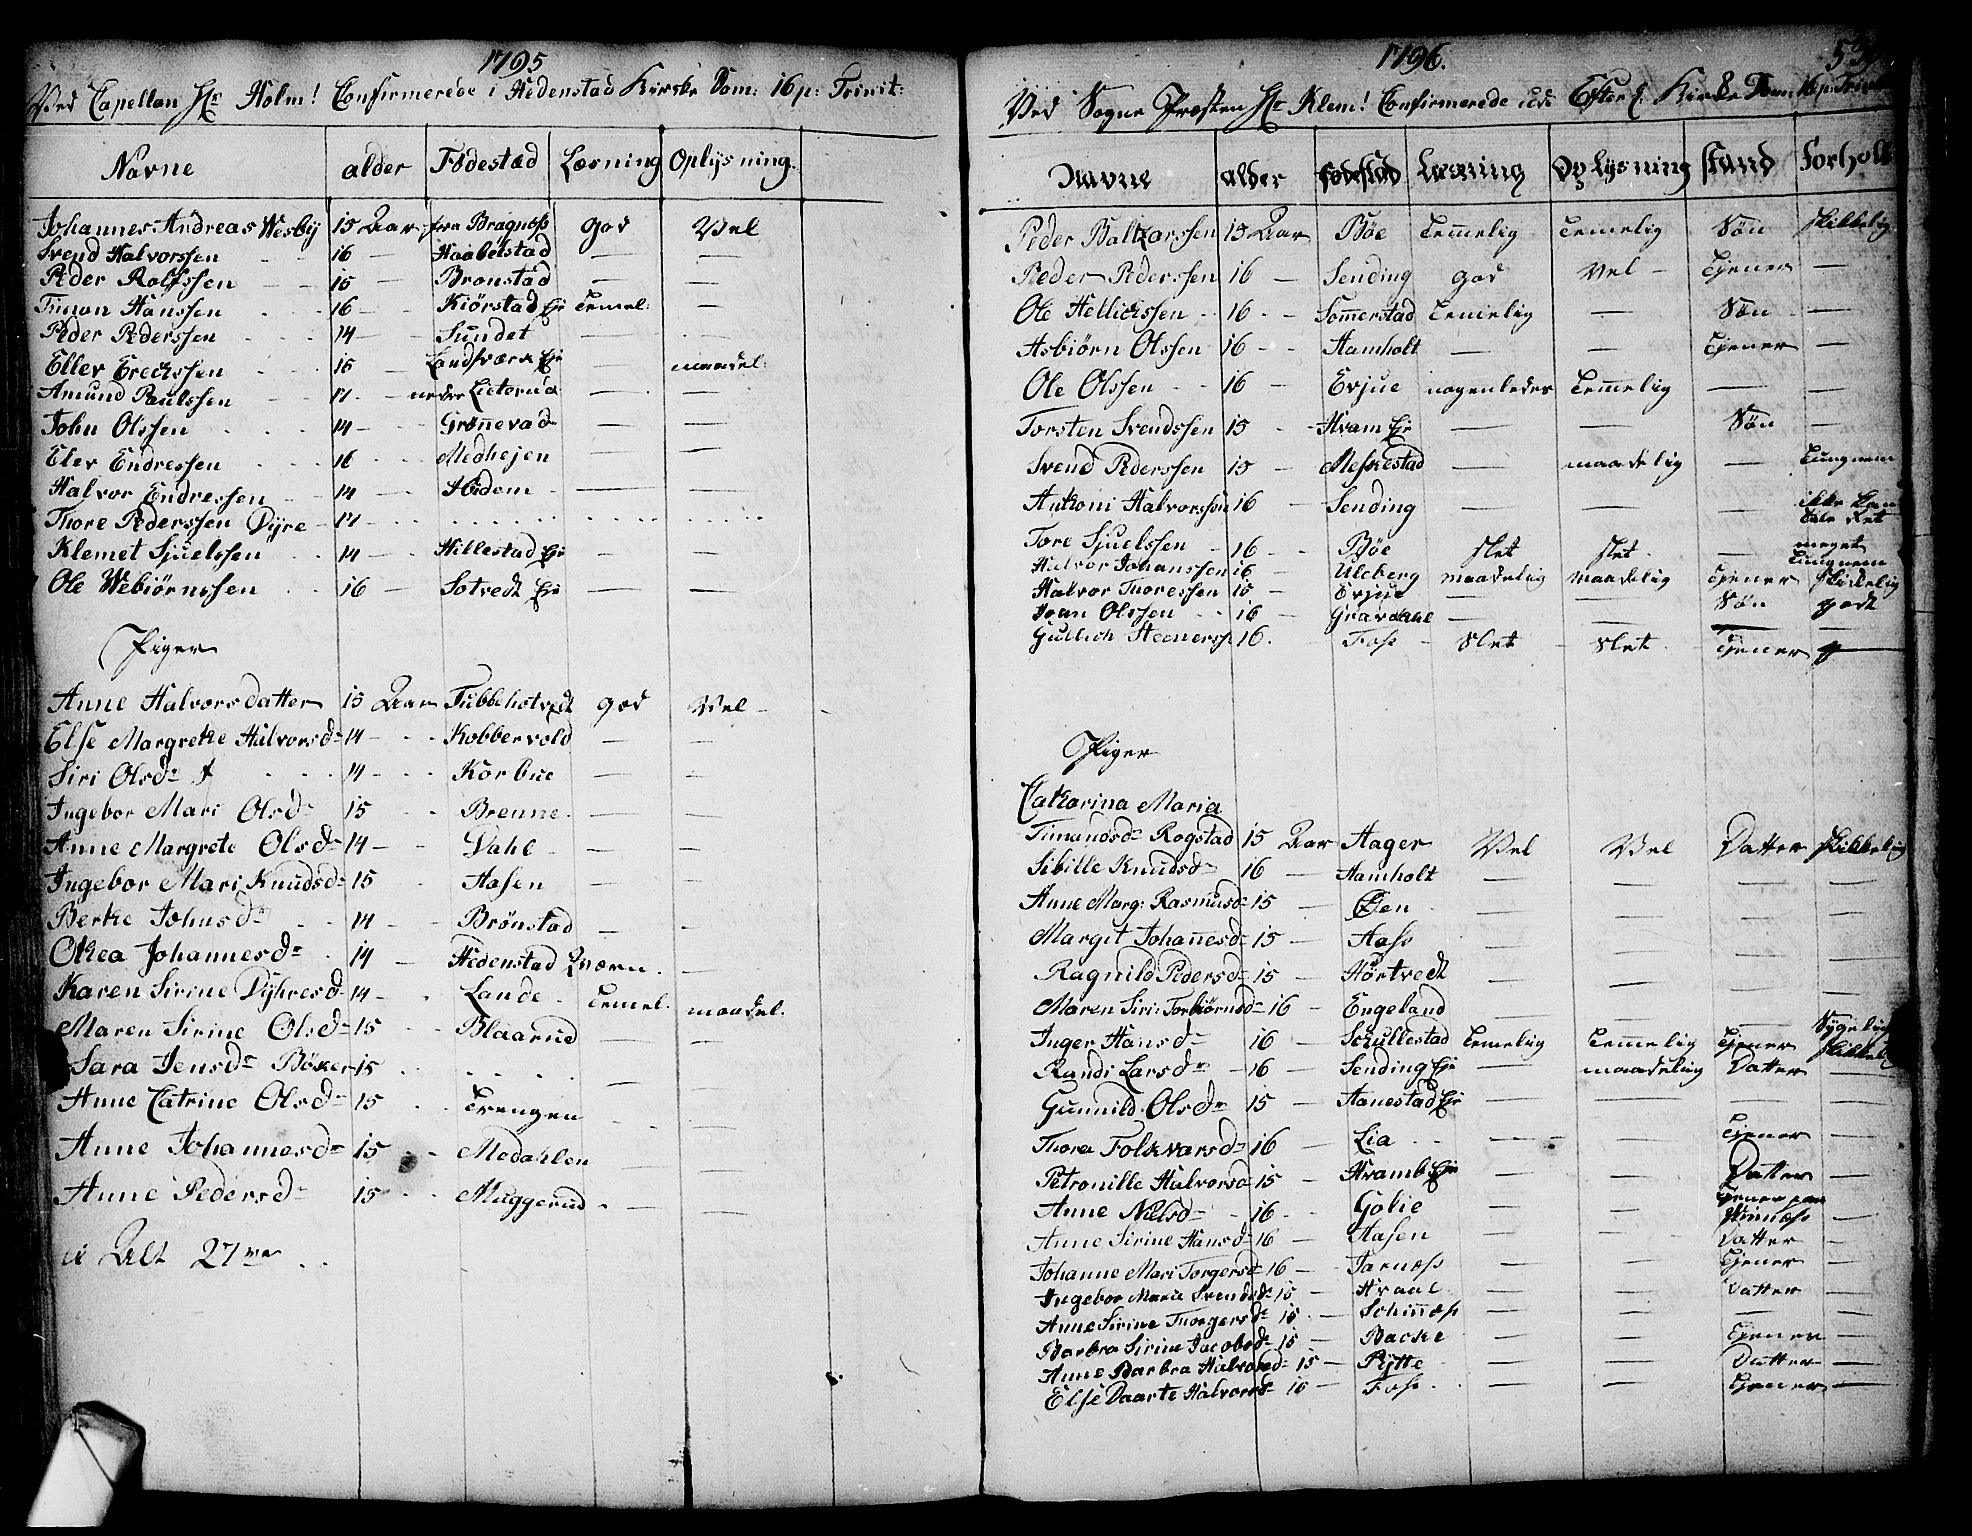 1795
Ved Capellan Hr Holm! Confirmerede i Hedenstad Kirke Dom: 16 p: Trinit:
Navne alder Fødestad Læsning Oplysning.
Johannes Andreas Wesby 15 Aar fra Bragnæss god Vel
Svend Halvorssen - - 16 — Haabelstad — —
Peder Rolfssen - - 15 — Bronstad — —
Timan Hanssen - - - 16 — Kiörstad Eje temel: —
Peder Pederssen - - - 14 — Sundet —
Eller Erichssen - - - 15 Landsværk Eje — maadel:
Amund Paulssen - - 17 - - nedre Lieterud — —
John Olssen - - - 14 - - Grönnevad — —
Elev Endressen - - - 16 - - Medhejen — —
Halvor Endressen - - 14 — Hidem — —
Thore Pederssen Dyre - 17 - - -
Klemet Sjuelssen - - 14 — Hillestad Eje — —
Ole Webiörnssen - - 16 — Sotvedt Eje — —
Piger
Anne Halvorsdatter 15 Aar Tubbehotvedt god Vel -
Else Margrethe Halvorsdr 14 - - Kobbervold — —
Siri Olsdr - - - 14 - - Korbue — —
Ingebor Mari Olsdr 15 - - Brenne — —
Anne Margrete Olsdr 14 — Dahl — —
Ingebor Mari Knudsdr 15 - Aasen — —
Berthe Johnsdr - - 14 — Brönstad — —
Othea Johannesdr - 14 — Hedenstad Qværn. —
Karen Sirine Dyhresdr 14 - - Lande - temel. maadel.
Maren Sirine Olsdr 15 - - Blaarud — —
Sara Jensdr Böker 15 - - - - — —
Anne Catrine Olsdr 15 - - Trengen - - —
Anne Johannesdr 15 - - Medahlen — —
Anne Pedersdr 15 - - Muggerud - — —
i Alt 27ve - -
1796.
Ved Sogne Præsten Hr Klem! Confirmerede udi Efter: Kirke Dom: 16 p: Trinit
Navne alder Fødestad Læsning Oplysning Stand Forhold
Peder Baltzarssen 15 Aar Böe temmelig temelig Sön skikkelig
Peder Pederssen 16 — Sending god Vel — tjener —
Ole Hellichssen - 16 - — Sommerstad temelig — Sön —
Asbiörn Olssen 16 - — Aamholt — — tjener —
Ole Olssen - - 16 — Evjue nogenledes temmelig — —
Torsten Svendssen 15 - - Hvam Eje — — Sön —
Svend Pederssen 15 — Meskestad — maadelig — tungnem
Anthoni Halvorssön 16 — Sending — — — ikke kan tale ret
Tore Sjuelssen - 16 — Böe slet slet - — meget tungnem
Halvor Johanssen 16 — Uleberg maadelig maadelig tjener skikkelig
Halvor Thoressen 15 — Evjue — — Sön godt
Joan Olssen - - 16 — Gravdahl — — —
Gullich Stenerss 16. - Foss - Slet - Slet - tjener —
Piger
Catharina Maria
Timandsdr Rogstad 15 Aar Aager Vel Vel Datter skikkelig
Sibille Knudsdr 16 — Aamholt — — — —
Anne Marg: Rasmusdr 15 — Öen - — — — —
Margit Johannesdr 15 — Aass — — — —
Ragnild Pedersdr 15 — Hörtvedt — — — —
Maren Siri: Torbiörnsdr 16 — Engeland — — — Sygelig
Inger Hansdr 16 — Schullestad temelig temmelig tjener skikkelig
Randi Larsdr - 16 — Sending Eje — maadelig Datter —
Gunnild Olsdr 15 — Aanestad Eje — — — —
Thorea Folkvarsdr 16 — Lia - - — — tjener —
Petronille Halvorsd 15 — Hvamb Eje — — Datter —
Anne Nielsdr - - 16 - - Golie — — tjener paa Skinnæss —
Anne Sirine Hansdr 16 — Aasen — — Datter —
Johanne Mari Torgersdr 16 — Jarnæss — — tjener —
Ingebor Maria Svendsdr 15 — Hvaal — — Datter —
Anne Sirine Thorgersdr 15 — Schinnæss — — — —
Barbra Sirine Jacobsdr 15 — Backe — — tjener —
Anne Barbra Halvorsdr 15 — Pytte — — Datter —
Else Daarte Halvorsdr 16 — Foss - - — — tjener —